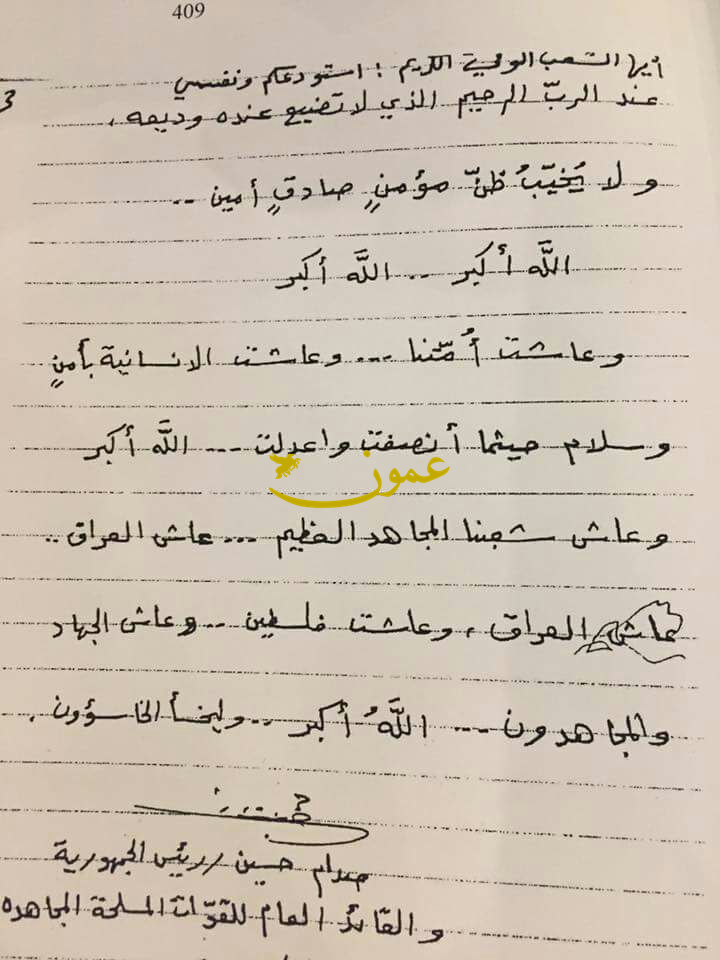 409
أيها الشعب الوفي الكريم : استودعكم ونفسي
عند الربّ الرحيم الذي لا تضيع عنده وديعه ،
ولا يُخيّبُ ظنّ مؤمنٍ صادقٍ أمين ..
اللَّه أكبر .. اللَّه أكبر
وعاشت أُمّتنا ... وعاشت الانسانية بأمنٍ
وسلام حيثما أنصفت واعدلت ... اللَّه أكبر
عمون
وعاش شعبنا المجاهد العظيم ... عاش العراق ..
عاش العراق ، وعاشت فلسطين .. وعاش الجهاد
والمجاهدون ... اللَّهُ أكبر .. وليخسأ الخاسؤون .
صدام حسين / رئيس الجمهورية
والقائد العام للقوّات المسلحة المجاهده